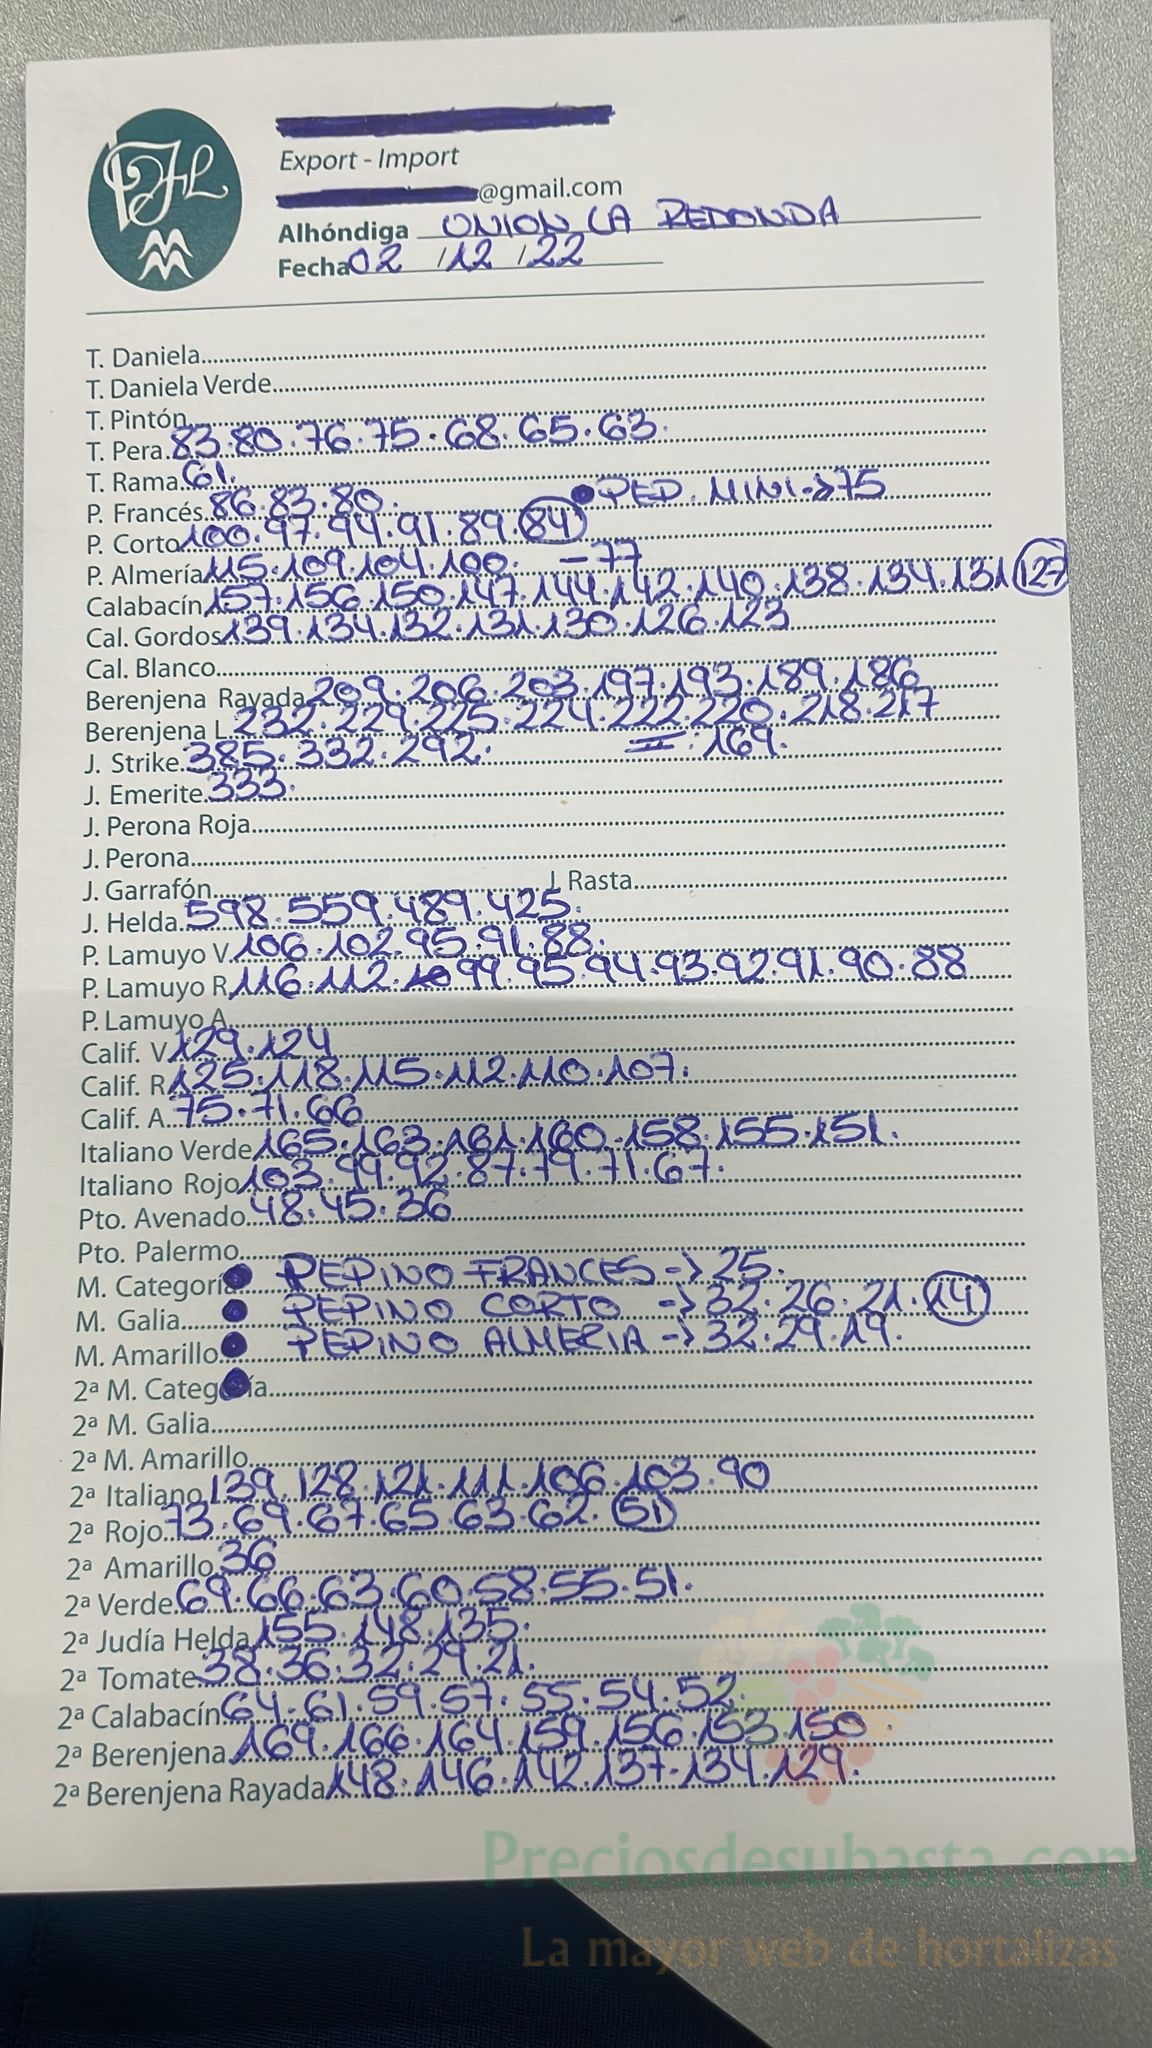 Export - Import
@gmail.com
Alhóndiga UNION LA REDONDA
Fecha 02 / 12 / 22
T. Daniela
T. Daniela Verde
T. Pintón
T. Pera 83.80.76.75.68.65.63.
T. Rama 61.
P. Francés 86.83.80. PEP. MINI -> 75
P. Corto 100.97.94.91.89.84
P. Almería 115.109.104.100. - 77
Calabacín 157.156.150.147.144.142.140.138.134.131 127
Cal. Gordos 139.134.132.131.130.126.123
Cal. Blanco
Berenjena Rayada 209.206.203.197.193.189.186
Berenjena L. 232.229.225.224.222.220.218.217
J. Strike 385.332.292. II: 169.
J. Emerite 333.
J. Perona Roja
J. Perona
J. Garrafón J. Rasta
J. Helda 598.559.489.425.
P. Lamuyo V. 106.102.95.91.88.
P. Lamuyo R. 116.112. 99.95.94.93.92.91.90.88
P. Lamuyo A
Calif. V. 129.124
Calif. R. 125.118.115.112.110.107.
Calif. A. 75.71.66
Italiano Verde 165.163.161.160.158.155.151.
Italiano Rojo 103.99.92.87.79.71.67.
Pto. Avenado 48.45.36
Pto. Palermo
M. Categoría PEPINO FRANCES -> 25.
M. Galia PEPINO CORTO -> 32.26.21.14
M. Amarillo PEPINO ALMERIA -> 32.29.19.
2ª M. Categoría
2ª M. Galia
2ª M. Amarillo
2ª Italiano 139.128.121.111.106.103.90
2ª Rojo 73.69.67.65.63.62.51
2ª Amarillo 36
2ª Verde 69.66.63.60.58.55.51.
2ª Judía Helda 155.148.135.
2ª Tomate 38.36.32.29.21.
2ª Calabacín 64.61.59.57.55.54.52.
2ª Berenjena 169.166.164.159.156.153.150.
2ª Berenjena Rayada 148.146.142.137.134.129.
Preciosdesubasta.com
La mayor web de hortalizas